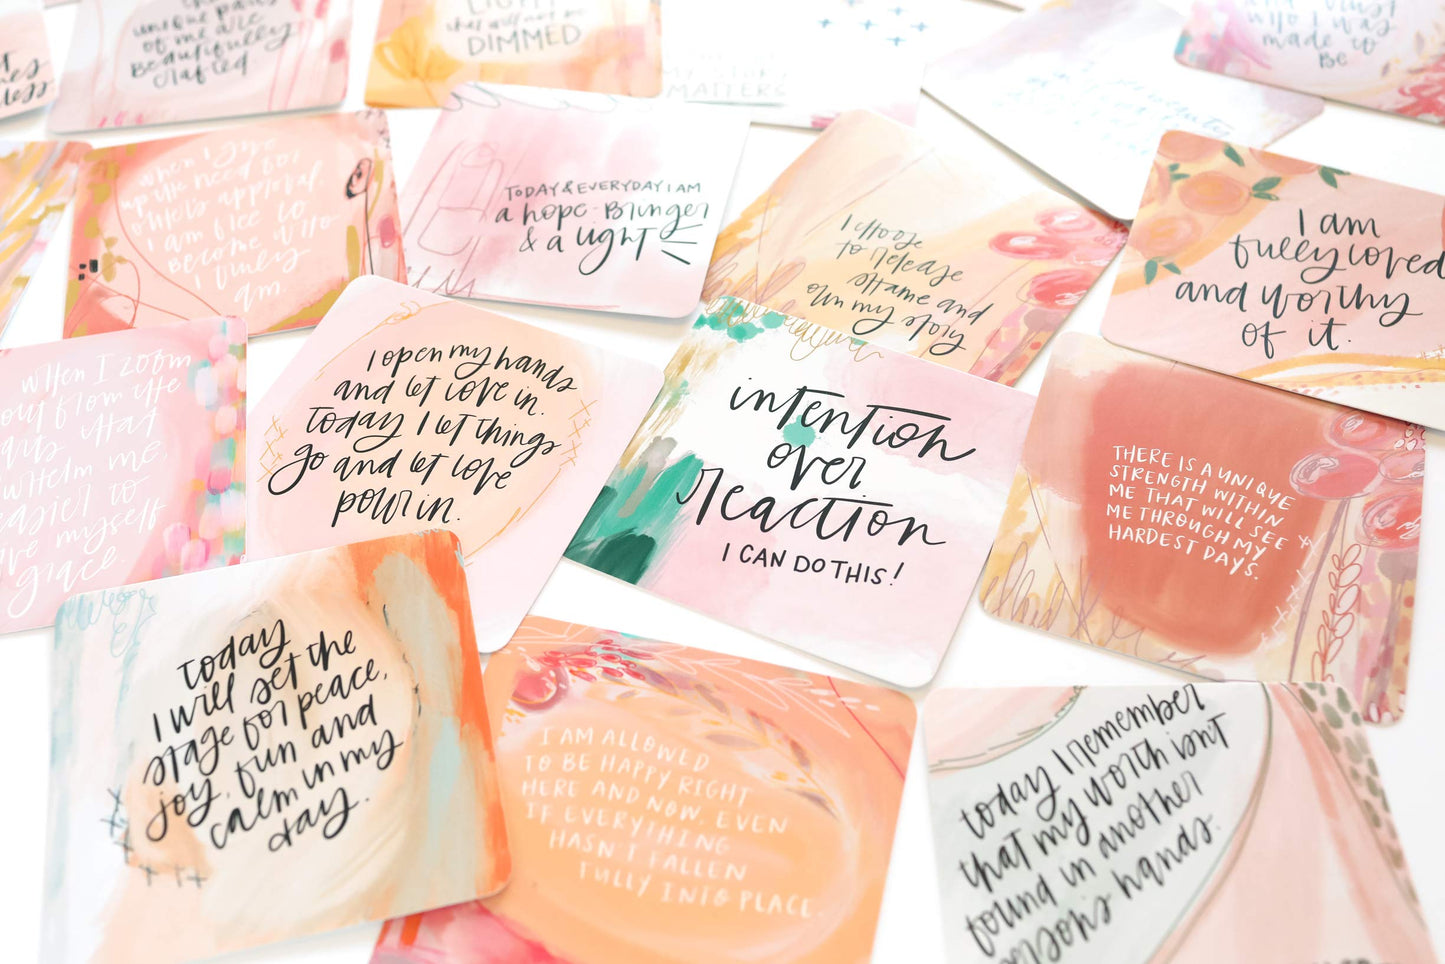 unique parts
of me are
beautifully
crafted.
LIGHT
that will not be
DIMMED
MY STORY
MATTERS
and trust
who I was
made to
Be
when I give
up the need for
other's approval,
I am free to
Become who
I truly
am.
TODAY & EVERYDAY I AM
a hope-Bringer
& a light
I choose
to release
shame and
own my story
I am
fully loved
and worthy
of it.
when I zoom
out from the
that
me,
easier to
myself
grace.
I open my hands
and let love in.
Today I let things
go and let love
pour in.
intention
over
reaction
I CAN DO THIS!
THERE IS A UNIQUE
STRENGTH WITHIN
ME THAT WILL SEE
ME THROUGH MY
HARDEST DAYS.
Today
I will set the
stage for peace,
joy, fun and
calm in my
day.
I AM ALLOWED
TO BE HAPPY RIGHT
HERE AND NOW, EVEN
IF EVERYTHING
HASN'T FALLEN
FULLY INTO PLACE.
today I remember
that my worth isn't
found in another
persons hands.